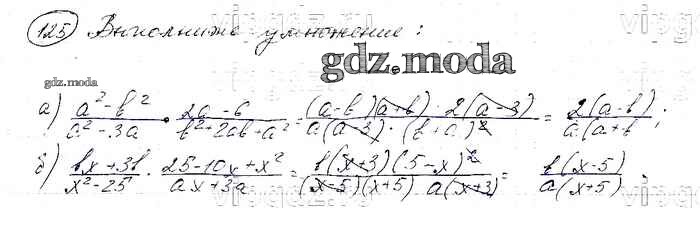 vipgdz.ru
125 Выполните умножение:
gdz.moda
gdz.moda
а) (a² - b²)/(a² - 3a) · (2a - 6)/(b² + 2ab + a²) = ((a-b)(a+b) · 2(a-3))/(a(a-3) · (b+a)²) = 2(a-b)/a(a+b ;
б) (bx + 3b)/(x² - 25) · (25 - 10x + x²)/(ax + 3a) = (b(x+3)(5-x)²)/((x-5)(x+5) a(x+3)) = b(x-5)/a(x+5) ;